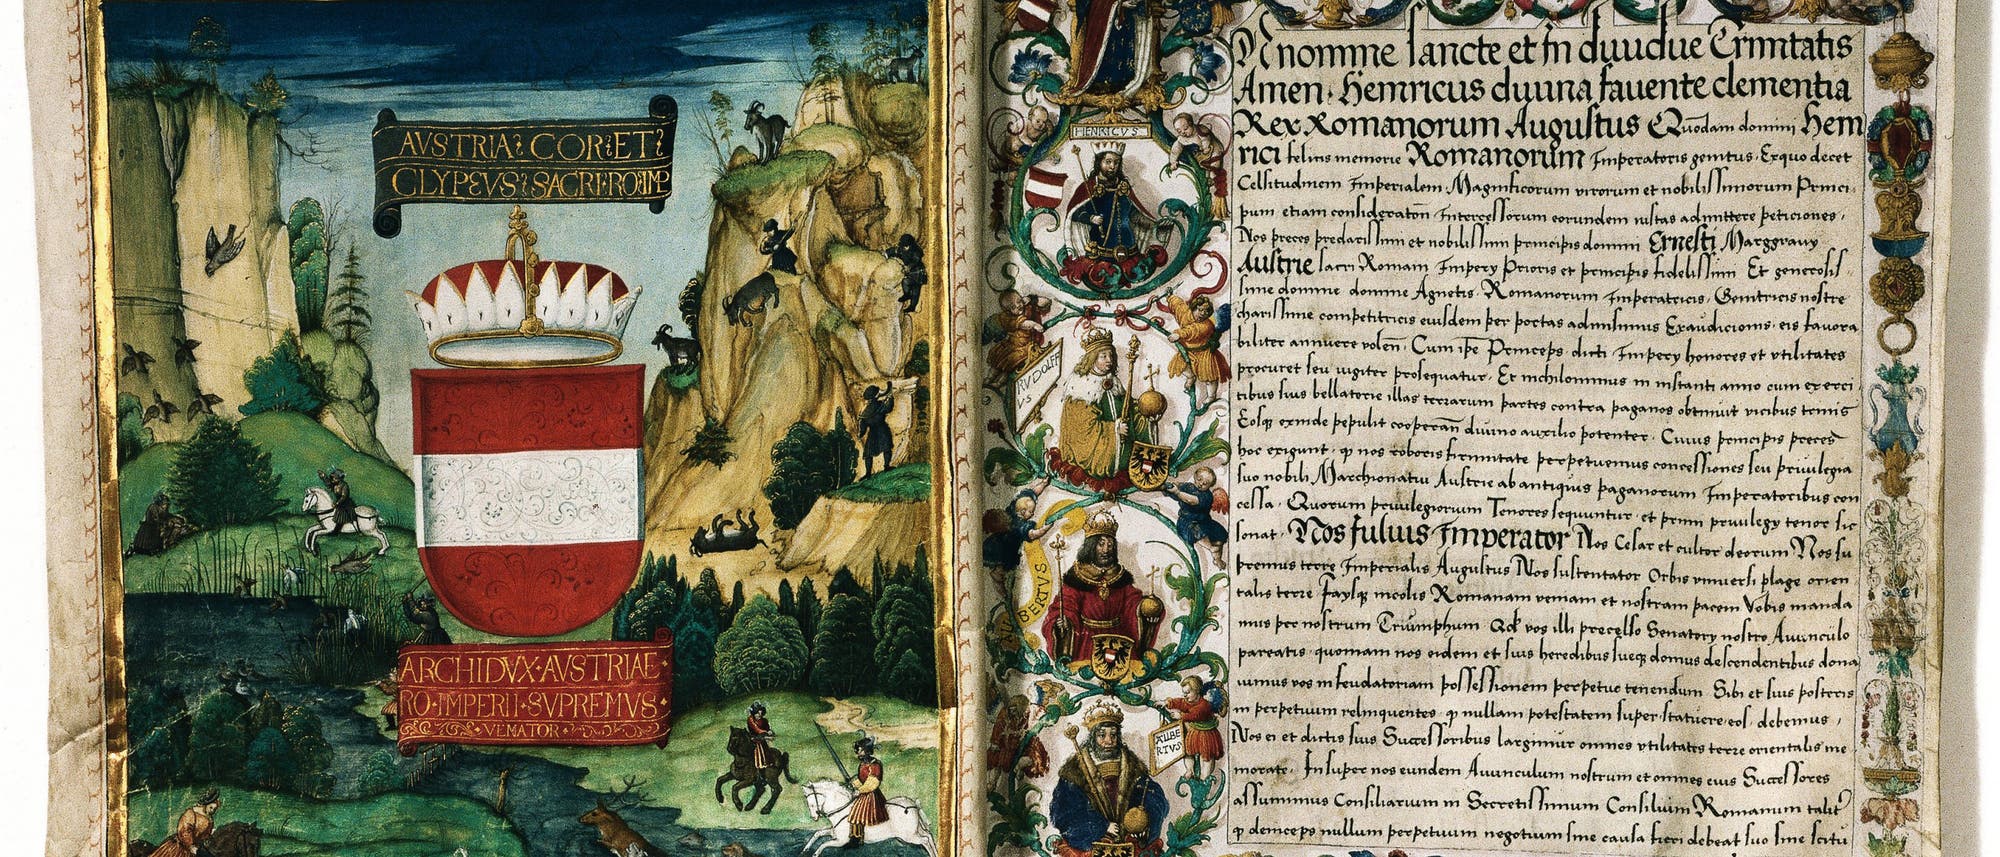 AVSTRIA COR ET
CLYPEVS SACRI RO IMP
ARCHIDVX·AVSTRIAE·
RO·IMPERII·SVPREMVS·
·VENATOR·
HENRICVS
RVDOLFF
VS
ALBERTVS
ALBE
RTVS
N nomine sancte et in diuidue Trinitatis
Amen· Heinricus diuina fauente clementia
Rex Romanorum Augustus Quondam domini Hein
rici felicis memorie Romanorum Imperatoris genitus· Exquo decet
Celsitudinem Imperialem Magnificorum virorum et nobilissimorum Princi·
pum etiam consideratoñ Intercessorum eorundem iustas admittere peticiones·
Nos preces predarissimi et nobilissimi principis domini Ernesti Marggrauy
Austrie sacri Romani Impery Prioris et principis fidelissimi Et generosis·
sime domine domine Agnetis· Romanorum Imperatricis· Genitricis nostre
charissime competitricis eiusdem per portas admisimus Exaudicionis· eis fauora
biliter annuere voleñ· Cum ipse Princeps dicti Impery honores et vtilitates
procuret seu vigiter prosequatur· Et nichilominus in instanti anno cum exerci·
tibus suis bellatorie illas terrarum partes contra paganos obtinuit vicibus trinis
Eosq exinde pepulit cooperañ diuino auxilio potenter· Cuius principis preces
hoc exigunt· q nos roboris firmitate perpetuemus concessiones seu priuilegia
suo nobili Marchionatui Austrie ab antiquis paganorum Imperatoribus con
cessa· Quorum priuilegiorum Tenores sequuntur· et primi priuilegy tenor sic
sonat· Nos Iulius Imperator Nos Cesar et cultor deorum Nos su
premus terre Imperialis Augustus Nos sustentator Orbis vniuersi plage orien
talis terre Faysq incolis Romanam veniam et nostram pacem Vobis manda
mus per nostrum Triumphum Qd vos illi precelso Senatory nostro Auunculo
pareatis· quoniam nos eidem et suis heredibus sueq domus descendentibus dona
uimus vos in feudatoriam possessionem perpetue tenendum Sibi et suis posteris
in perpetuum relinquentes· q nullam potestatem super statuere eos· debemus·
Nos ei et dictis suis Successoribus largimur omnes vtilitates terre orientalis me
morate· Insuper nos eundem Auunculum nostrum et omnes eius Successores
assumimus Consiliarium in Secretissimum Consilium Romanum talit
q deinceps nullum perpetuum negotium sine causa fieri debeat suo sine scitu